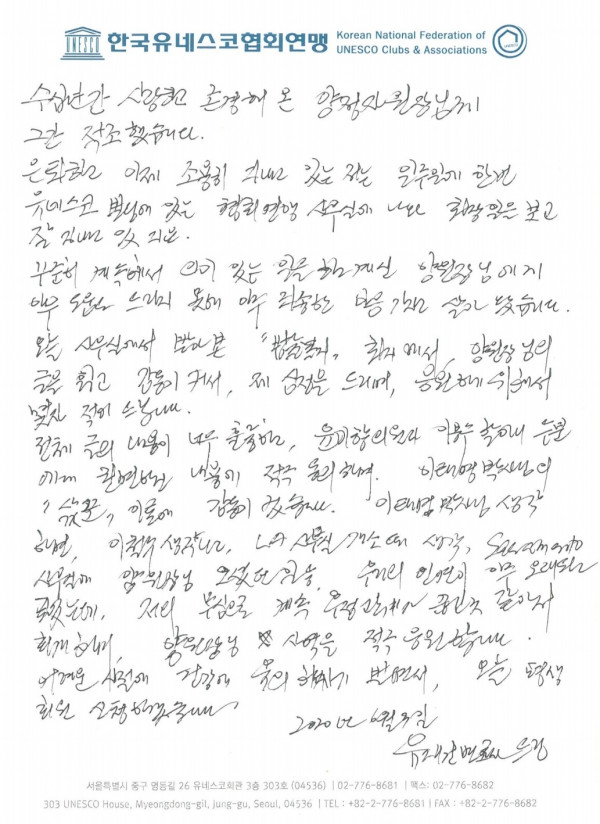 UNESCO
한국유네스코협회연맹 Korean National Federation of
UNESCO Clubs & Associations
수십년간 사랑하고 존경해 온 양정자원장님께
그간 적조했습니다.
은퇴하고 이제 조용히 지내고 있는 저는 일주일에 한번
유네스코 빌딩에 있는 협회연맹 사무실에 나와 회장일을 보고
잘 지내고 있지요.
꾸준히 계속해서 의미 있는 일을 하고 계신 양원장님에게
아무 도움도 드리지 못해 아주 죄송한 마음 가지고 살아 왔습니다.
오늘 사무실에서 받아 본 회지에서, 양원장님의
글을 읽고 감동이 커서, 제 심정을 드리며, 응원하기 위해서
몇자 적어 드립니다.
전체 글의 내용이 너무 훌륭하고, 윤미향의원과 이용수 할머니
에게 내용에 적극 동의하며. 이태영박사님의
이름에 감동이 컸습니다. 이태영박사님 생각
하면, 생각나고, LA 사무실 개소때 생각, Sacramento
사무실에 양원장님 오셨던 일들, 우리의 인연이 아주 오래되
었는데, 저의 무심으로 계속 같아서
회개하며, 양원장님 사역을 적극 응원합니다.
어려운 시절에 건강에 바라면서, 오늘 평생
회원 신청하겠습니다
2020년 6월
유재건변호사 드림
서울특별시 중구 명동길 26 유네스코회관 3층 303호 (04536) | 02-776-8681 | 팩스: 02-776-8682
303 UNESCO House, Myeongdong-gil, Jung-gu, Seoul, 04536 | TEL : +82-2-776-8681 | FAX : +82-2-776-8682